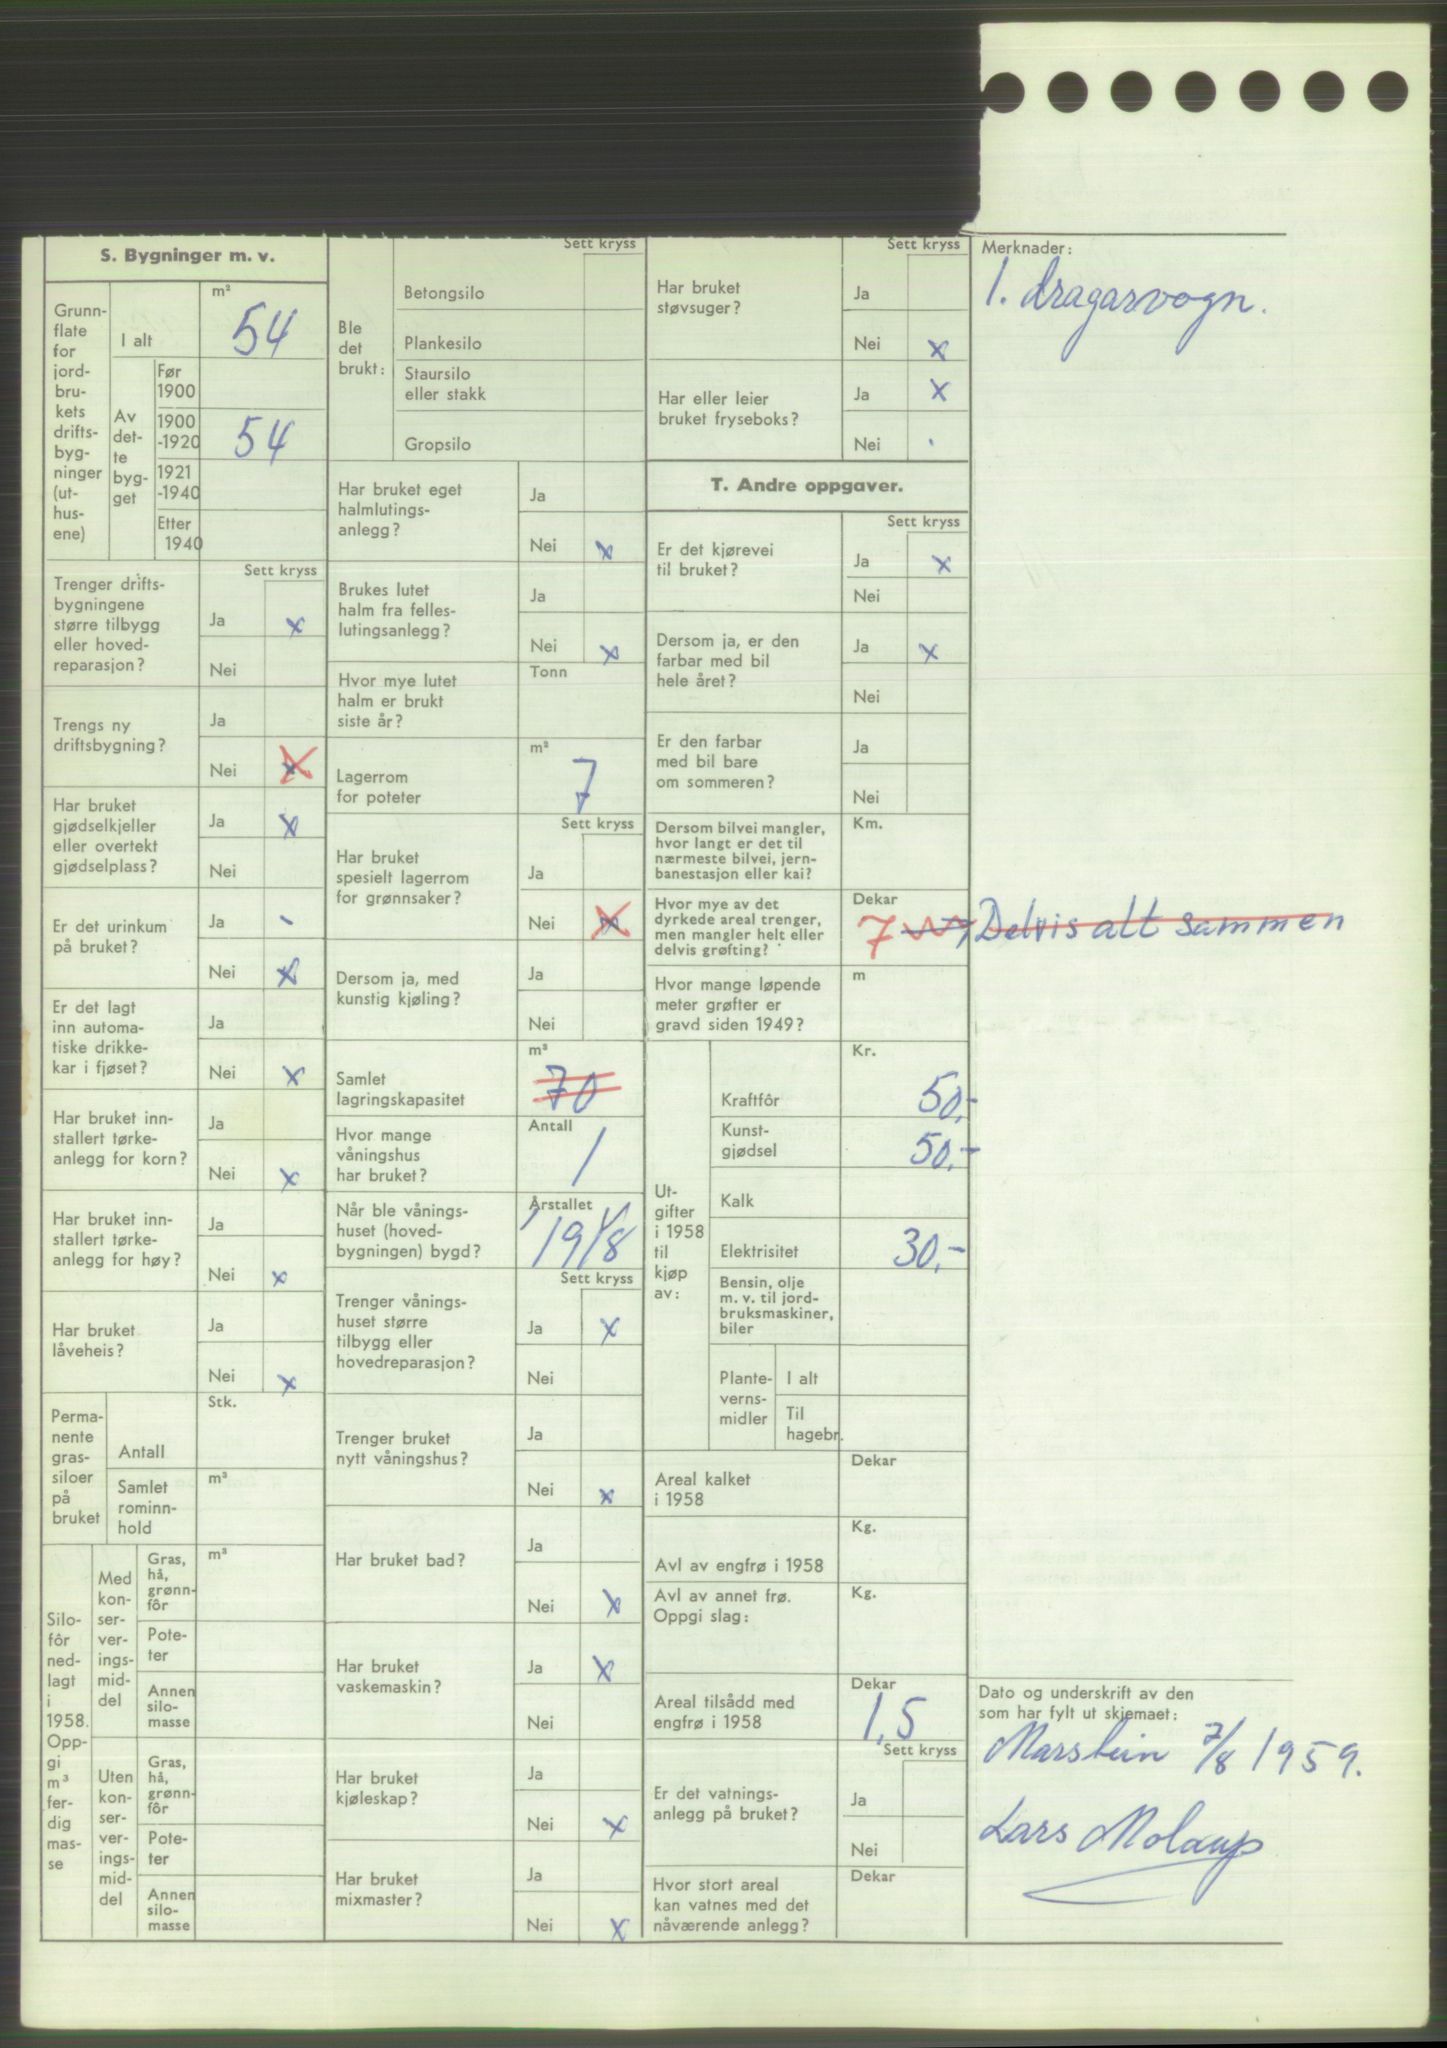 S. Bygninger m. v.
Grunn-
flate
for
jord-
bru-
kets
drifts-
byg-
ninger
(ut-
hus-
ene)
I alt
m²
54
Av
det-
te
byg-
get
Før
1900
1900
-1920
54
1921
-1940
Etter
1940
Sett kryss
Trenger drifts-
bygningene
større tilbygg
eller hoved-
reparasjon?
Ja x
Nei
Trengs ny
driftsbygning?
Ja
Nei x
Har bruket
gjødselkjeller
eller overtekt
gjødselplass?
Ja x
Nei
Er det urinkum
på bruket?
Ja -
Nei x
Er det lagt
inn automa-
tiske drikke-
kar i fjøset?
Ja
Nei x
Har bruket inn-
stallert tørke-
anlegg for korn?
Ja
Nei x
Har bruket inn-
stallert tørke-
anlegg for høy?
Ja
Nei x
Har bruket
låveheis?
Ja
Nei x
Perma-
nente
gras-
siloer
på
bruket
Antall
Stk.
Samlet
rominn-
hold
m³
Silo-
fôr
ned-
lagt
i
1958.
Opp-
gi
m³
fer-
dig
mas-
se
Med
kon-
ser-
ver-
ings-
mid-
del
Gras,
hå,
grønn-
fôr
m³
Pote-
ter
Annen
silo-
masse
Uten
kon-
ser-
ver-
ings-
mid-
del
Gras,
hå,
grønn-
fôr
Pote-
ter
Annen
silo-
masse
Sett kryss
Ble
det
brukt:
Betongsilo
Plankesilo
Staursilo
eller stakk
Gropsilo
Har bruket eget
halmlutings-
anlegg?
Ja
Nei x
Brukes lutet
halm fra felles-
lutingsanlegg?
Ja
Nei x
Hvor mye lutet
halm er brukt
siste år?
Tonn
Lagerrom
for poteter
m²
7
Sett kryss
Har bruket
spesielt lagerrom
for grønnsaker?
Ja
Nei x
Dersom ja, med
kunstig kjøling?
Ja
Nei
Samlet
lagringskapasitet
m³
70
Hvor mange
våningshus
har bruket?
Antall
1
Når ble vånings-
huset (hoved-
bygningen) bygd?
Årstallet
1918
Sett kryss
Trenger vånings-
huset større
tilbygg eller
hovedreparasjon?
Ja x
Nei
Trenger bruket
nytt våningshus?
Ja
Nei x
Har bruket bad?
Ja
Nei x
Har bruket
vaskemaskin?
Ja x
Nei
Har bruket
kjøleskap?
Ja
Nei x
Har bruket
mixmaster?
Ja
Nei x
Sett kryss
Har bruket
støvsuger?
Ja
Nei x
Har eller leier
bruket fryseboks?
Ja x
Nei
T. Andre oppgaver.
Sett kryss
Er det kjørevei
til bruket?
Ja x
Nei
Dersom ja, er den
farbar med bil
hele året?
Ja x
Nei
Er den farbar
med bil bare
om sommeren?
Ja
Nei
Dersom bilvei mangler,
hvor langt er det til
nærmeste bilvei, jern-
banestasjon eller kai?
Km.
Hvor mye av det
dyrkede areal trenger,
men mangler helt eller
delvis grøfting?
Dekar
7
Hvor mange løpende
meter grøfter er
gravd siden 1949?
m
Ut-
gifter
i 1958
til
kjøp
av:
Kr.
Kraftfôr
50,-
Kunst-
gjødsel
50,-
Kalk
Elektrisitet
30,-
Bensin, olje
m. v. til jord-
bruksmaskiner,
biler
Plante-
verns-
midler
I alt
Til
hagebr.
Areal kalket
i 1958
Dekar
Avl av engfrø i 1958
Kg.
Avl av annet frø.
Oppgi slag:
Kg.
Areal tilsådd med
engfrø i 1958
Dekar
1,5
Sett kryss
Er det vatnings-
anlegg på bruket?
Ja
Nei
Hvor stort areal
kan vatnes med det
nåværende anlegg?
Dekar
Merknader:
1. dragarvogn.
Delvis alt sammen
Dato og underskrift av den
som har fylt ut skjemaet:
Marstein 7/8 1959.
Lars